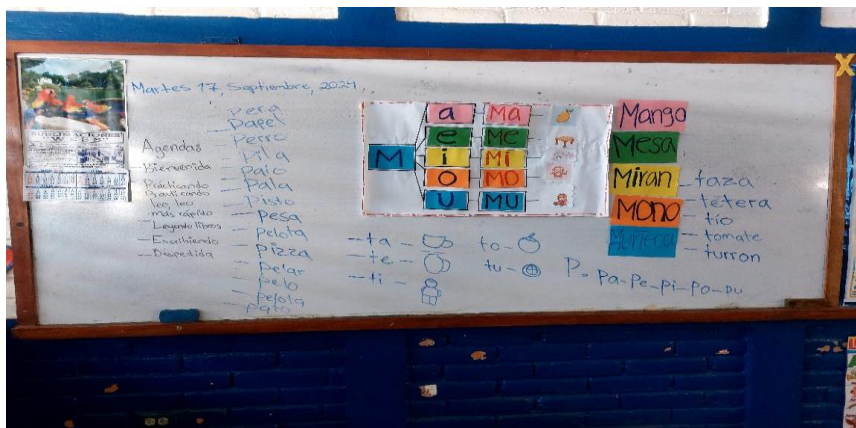 Martes 17, Septiembre, 2024
Agendas
- Bienvenida
- Practicando
leo, leo
más rápido
- Leyendo libros
- Escribiendo
- Despedida
- pera
- papel
- perro
- pila
- palo
- pala
- pisto
- pesa
- pelota
- pizza
- pelar
- pelo
- pelota
- pato
M
a Ma
e Me
i Mi
o Mo
u Mu
Mango
Mesa
Miran
Mono
Muñeca
- taza
- tetera
- tío
- tomate
- turron
- ta -
- te -
- ti -
to -
tu -
P - pa - pe - pi - po - pu
X